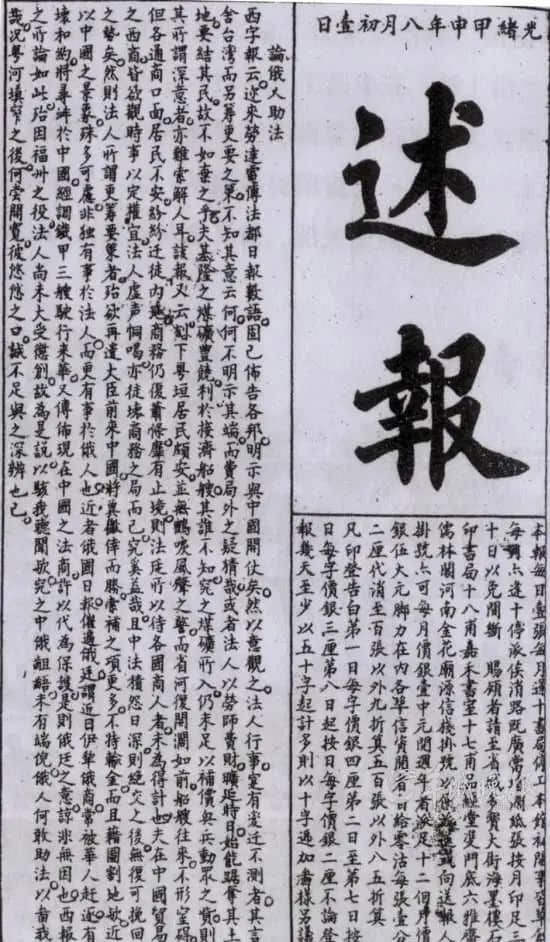 光緒甲申年八月初壹日
述報
本報每日壹張每月進十書局傳工本館
每 六逢十停派俟消路既廣常 紙張按月印足三
十日以免間斷 賜顧者請至省 大街海墨樓石
印書局十八甫嘉禾書室十七甫品經堂雙門底六雅齋
儒林閣河南金花廟源信棧掛號 送報人
掛號亦可每月價銀壹中元閏週年者派足十二個月價
銀伍大元脚力在内各埠信資閱者日給零沽每張壹分
二厘代消至百張以外九折算五百張以外八五折算
凡印登告白第一日每字價銀四厘第二日至第七日按
日每字價銀三厘第八日起按日每字價銀二厘不論登
報幾天至少以五十字起計多則以十字遞加畵樣另議
論俄人助法
西字報云近來勞 電傳法都日報數語固已佈告各邦明示與中國開仗矣然以意觀之法人行事寔有 近不測者其言
舍台灣而另籌更要之策不知其意云何何不明示其端而費局外之疑猜哉或者法人以勞師費財曠延時日始能踞 其土
地要結其民故不如棄之乎夫基隆之煤礦豐饒利於接濟船艘其誰不知究之煤礦所入仍未足以補償兵動眾之費則
其所謂深意者亦難索解人耳該報又云刻下粵垣居民頗安並無鶴唳風聲之警而省河復開濶如前船艘往來不形窒碍
但各通商口面居民不安紛紛迁徙内地商務仍復蕭條靡有止境則法廷所以待各國商人者未為得計也夫在中國貿易
之西商皆欲觀時事以定權宜法人虛声恫喝亦徒壞商務之局而已究奚益哉且中法積怨日深則絕交之後無復可挽回
之勢矣然則法人所謂更籌要策者殆欲再遣大臣前來中國將冀徼倖而勝索補之項更多不特輸金而且藉圖割地歟近
以中國之景象殊多可慮非独有事於法人而更有事於俄人也近者俄國日報催逼俄廷謂近日伊犂俄商常被華人赶逐有
壞和約將尋衅於中國經調鉄甲三艘駛行來華又傳佈現在中國之法商許以代為保護是則俄廷之意諒非無因也西報
之所論如此殆因福州之役法人尚未大受懲創故為是說以駭我聽聞歟究之中俄齟齬未有端倪俄人何敢助法以背我
哉况粵河填塞之後何嘗開寬彼悠悠之口誠不足與之深辨也已